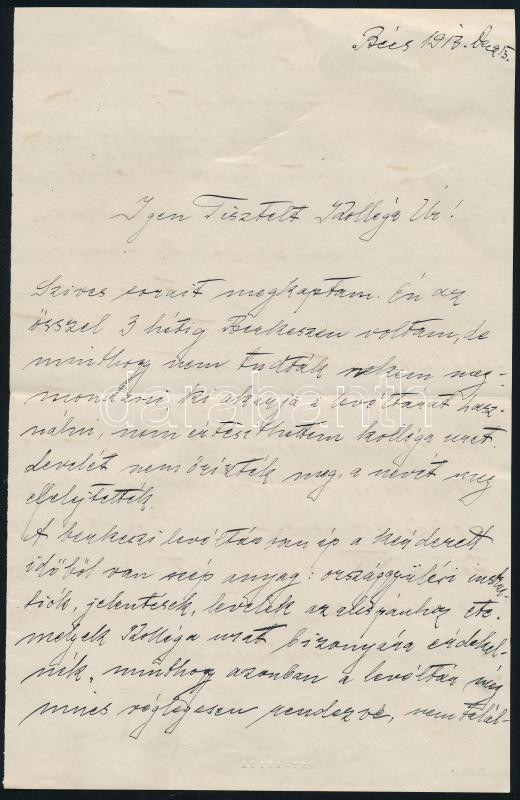 Bécs 1913. Dec 3.
Igen Tisztelt Kolléga Úr!
Szives sorait megkaptam. Én az
ősszel 3 hétig Berkeszen voltam, de
minthogy nem tudták nekem meg-
mondani, ki akarja a levéltárat hasz-
nálni, nem értesíthettem kolléga urat.
Levelét nem őrizték meg, a nevét meg
elfelejtették.
A berkeszi levéltárban ép a kérdezett
időből van szép anyag: országgyűlési instruk-
tiók, jelentések, levelek az alispánhoz etc.
melyek Kolléga urat bizonyára érdekel-
nék, minthogy azonban a levéltár még
nincs véglegesen rendezve, nem talál-
darabanth